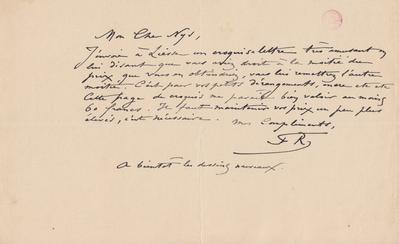 Mon Cher Nys,
J'envoie à Liesse un croquis-lettre très amusant en
lui disant que vous avez droit à la moitié du
prix que vous en obtiendrez, vous lui remettrez l'autre
moitié. C'est pour vos petits dérangements, encre etc etc
Cette page de croquis me paraît bien valoir au moins
60 francs. Il faut maintenir vos prix un peu plus
élevés, c'est nécessaire. Mes Compliments,
FR
A bientôt les dessins nouveaux.